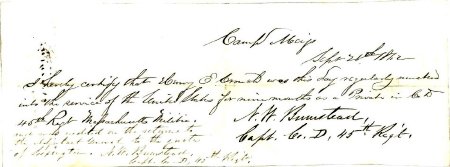 Camp Meigs
Sept 26th 1862
I hereby certify that Henry E. was this day regularly mustered
into the service of the United States for nine months as a Private in Co D
45th Regt Massachusetts Militia. N. W. Bumstead,
on the returns to Capt. Co. D, 45th Regt.
the Adjutant General
of N. W. Bumstead
Capt. Co. D, 45th Regt.